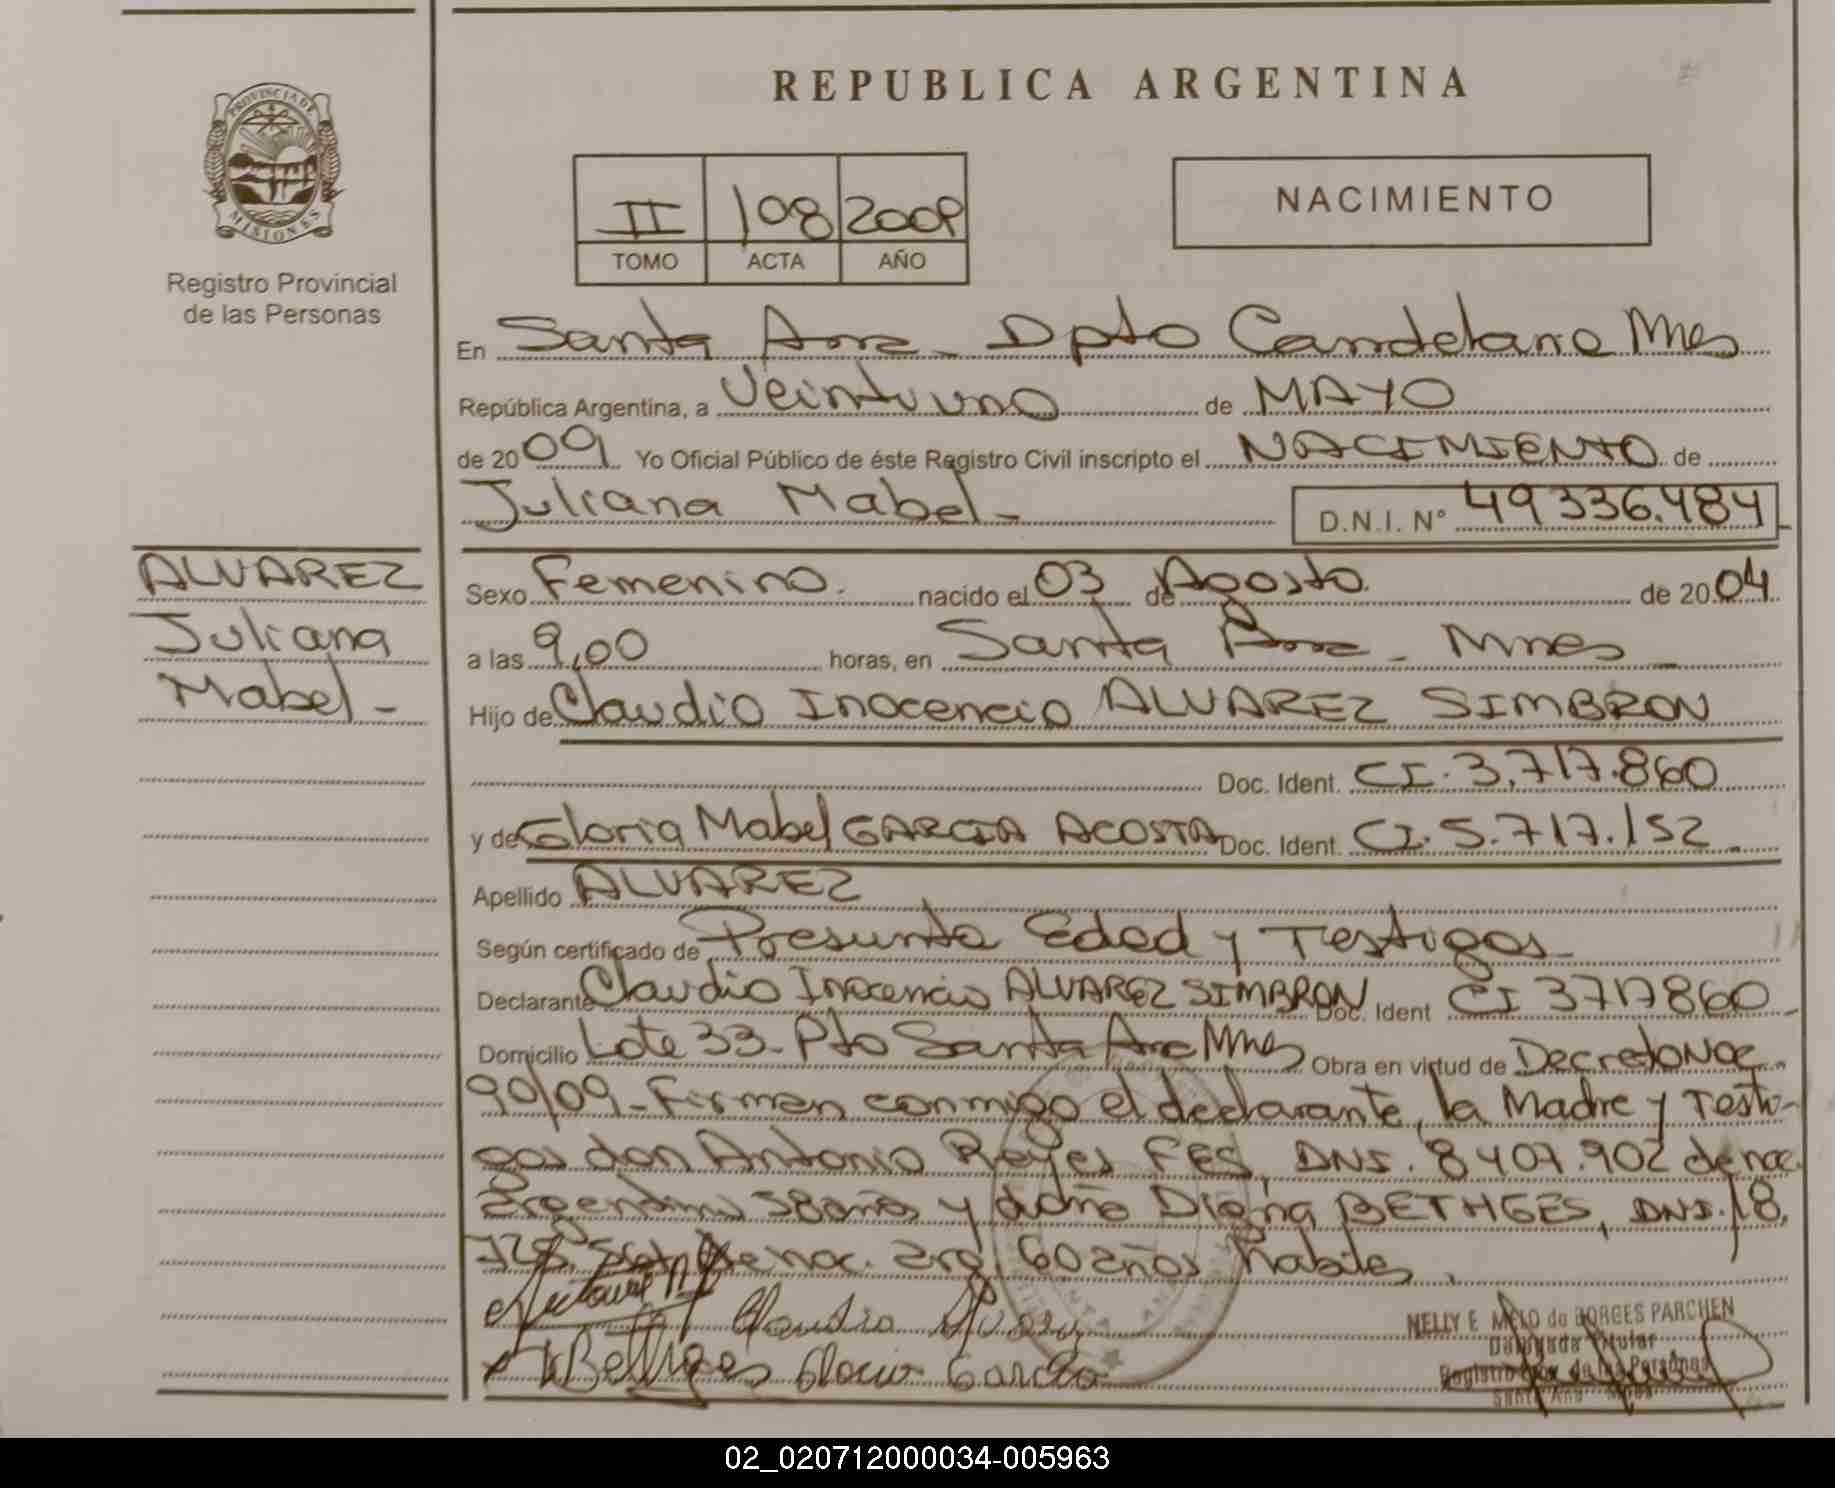 REPUBLICA ARGENTINA
PROVINCIA DE
MISIONES
Registro Provincial
de las Personas
II 108 2009
TOMO ACTA AÑO
NACIMIENTO
En Santa Ana - Dpto Candelaria Mnes
República Argentina, a Veintiuno de MAYO
de 2009 Yo Oficial Público de éste Registro Civil inscripto el NACIMIENTO de
Juliana Mabel - D.N.I. N° 49336.484 -
ALVAREZ
Juliana
Mabel -
Sexo Femenino. nacido el 03 de Agosto. de 2004
a las 9,00 horas, en Santa Ana - Mnes -
Hijo de Claudio Inocencio ALVAREZ SIMBRON
Doc. Ident. CI. 3.717.860
y de Gloria Mabel GARCIA ACOSTA Doc. Ident. CI. 5.717.152 -
Apellido ALVAREZ
Según certificado de Presunta Edad y Testigos -
Declarante Claudio Inocencio ALVAREZ SIMBRON Doc. Ident CI 3717860 -
Domicilio Lote 33 - Pto Santa Ana Mnes Obra en virtud de Decreto Nac
90/09 - Firman conmigo el declarante, la Madre y Testi-
gos don Antonio Reyes FES, DNI. 8407.902 de nac.
argentina 58 años y doña Digna BETHGES, DNI. 18.
de nac. arg. 60 años habiles.
Claudio Alvarez
Bethges Gloria Garcia
NELLY E. MELO de BORGES PARCHEN
Delegada Titular
Registro Prov. de las Personas
Santa Ana - Mnes
02_020712000034-005963